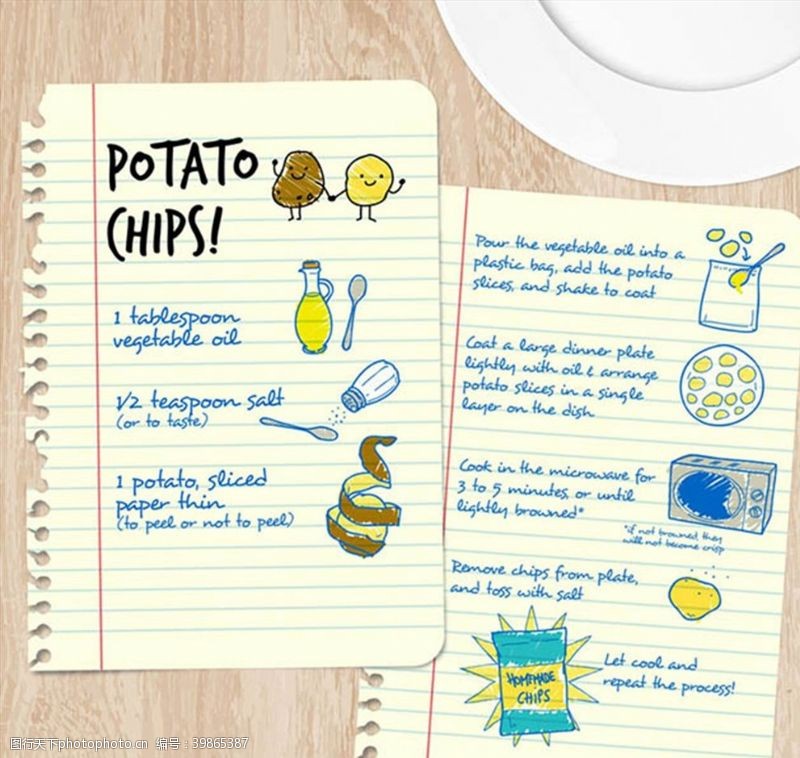 POTATO
CHIPS!
1 tablespoon
vegetable oil
1/2 teaspoon salt
(or to taste)
1 potato, sliced
paper thin
(to peel or not to peel)
Pour the vegetable oil into a
plastic bag, add the potato
slices, and shake to coat
Coat a large dinner plate
lightly with oil & arrange
potato slices in a single
layer on the dish
Cook in the microwave for
3 to 5 minutes, or until
lightly browned*
*if not browned, they
will not become crisp
Remove chips from plate,
and toss with salt
HOMEMADE
CHIPS
Let cool and
repeat the process!
图行天下photophoto.cn 编号:39865387